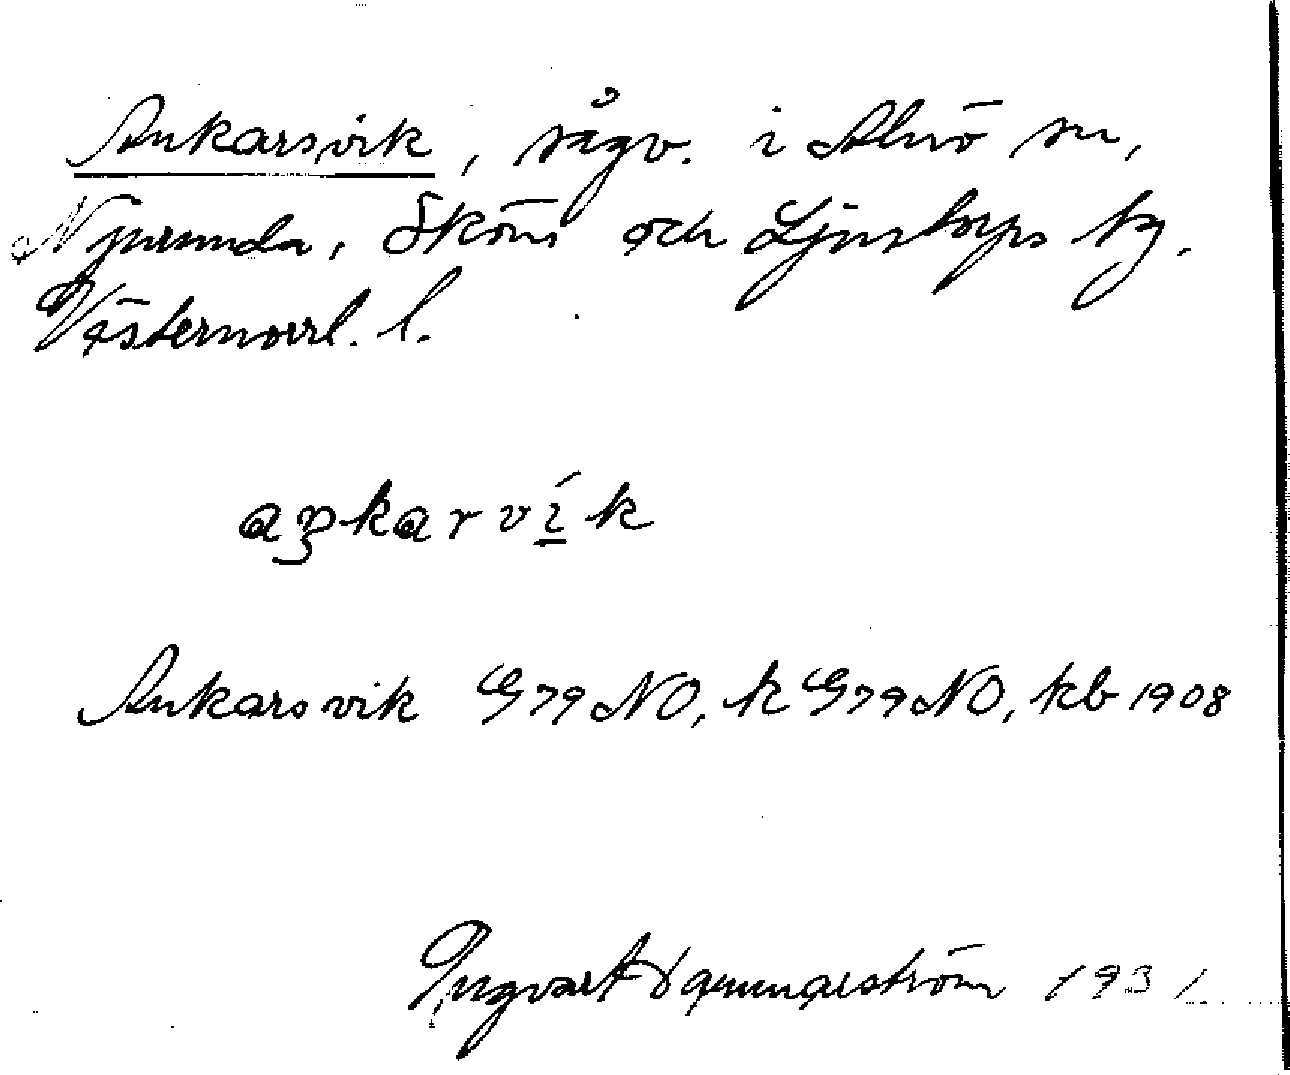 Ankarsvik, sågv. i Alnö sn,
Njurunda, Sköns och Ljustorps tg,
Västernorrl. l.
aŋkarvík
Ankarsvik G79NO, k G79NO, kb 1908
Ingvart 1931